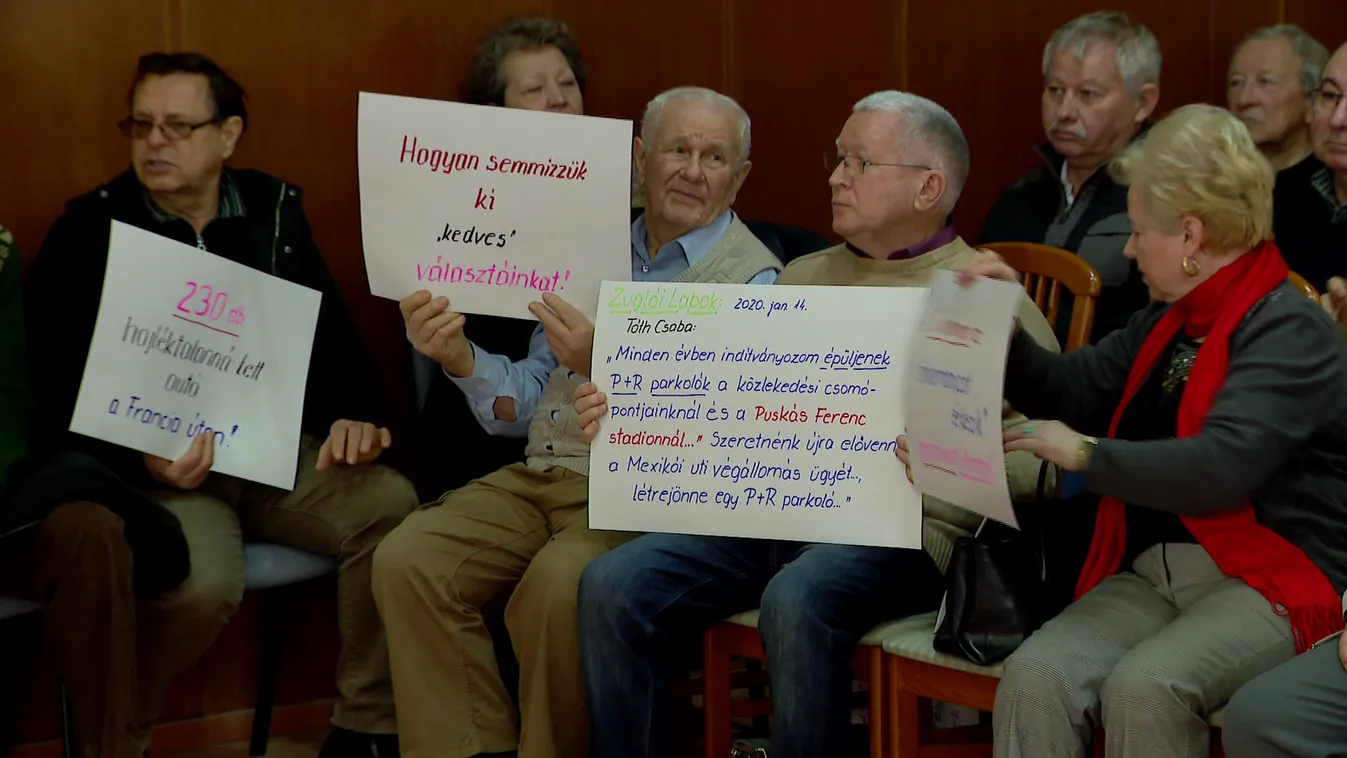 230 db
hajléktalanná tett
autó
a Francia úton!
Hogyan semmizzük
ki
„kedves"
választóinkat!
Zuglói Lapok: 2020. jan. 14.
Tóth Csaba:
„Minden évben indítványozom épüljenek
P+R parkolók a közlekedési csomó-
pontjainknál és a Puskás Ferenc
stadionnál..." Szeretnénk újra elővenn
a Mexikói uti végállomás ügyét...,
létrejönne egy P+R parkoló..."